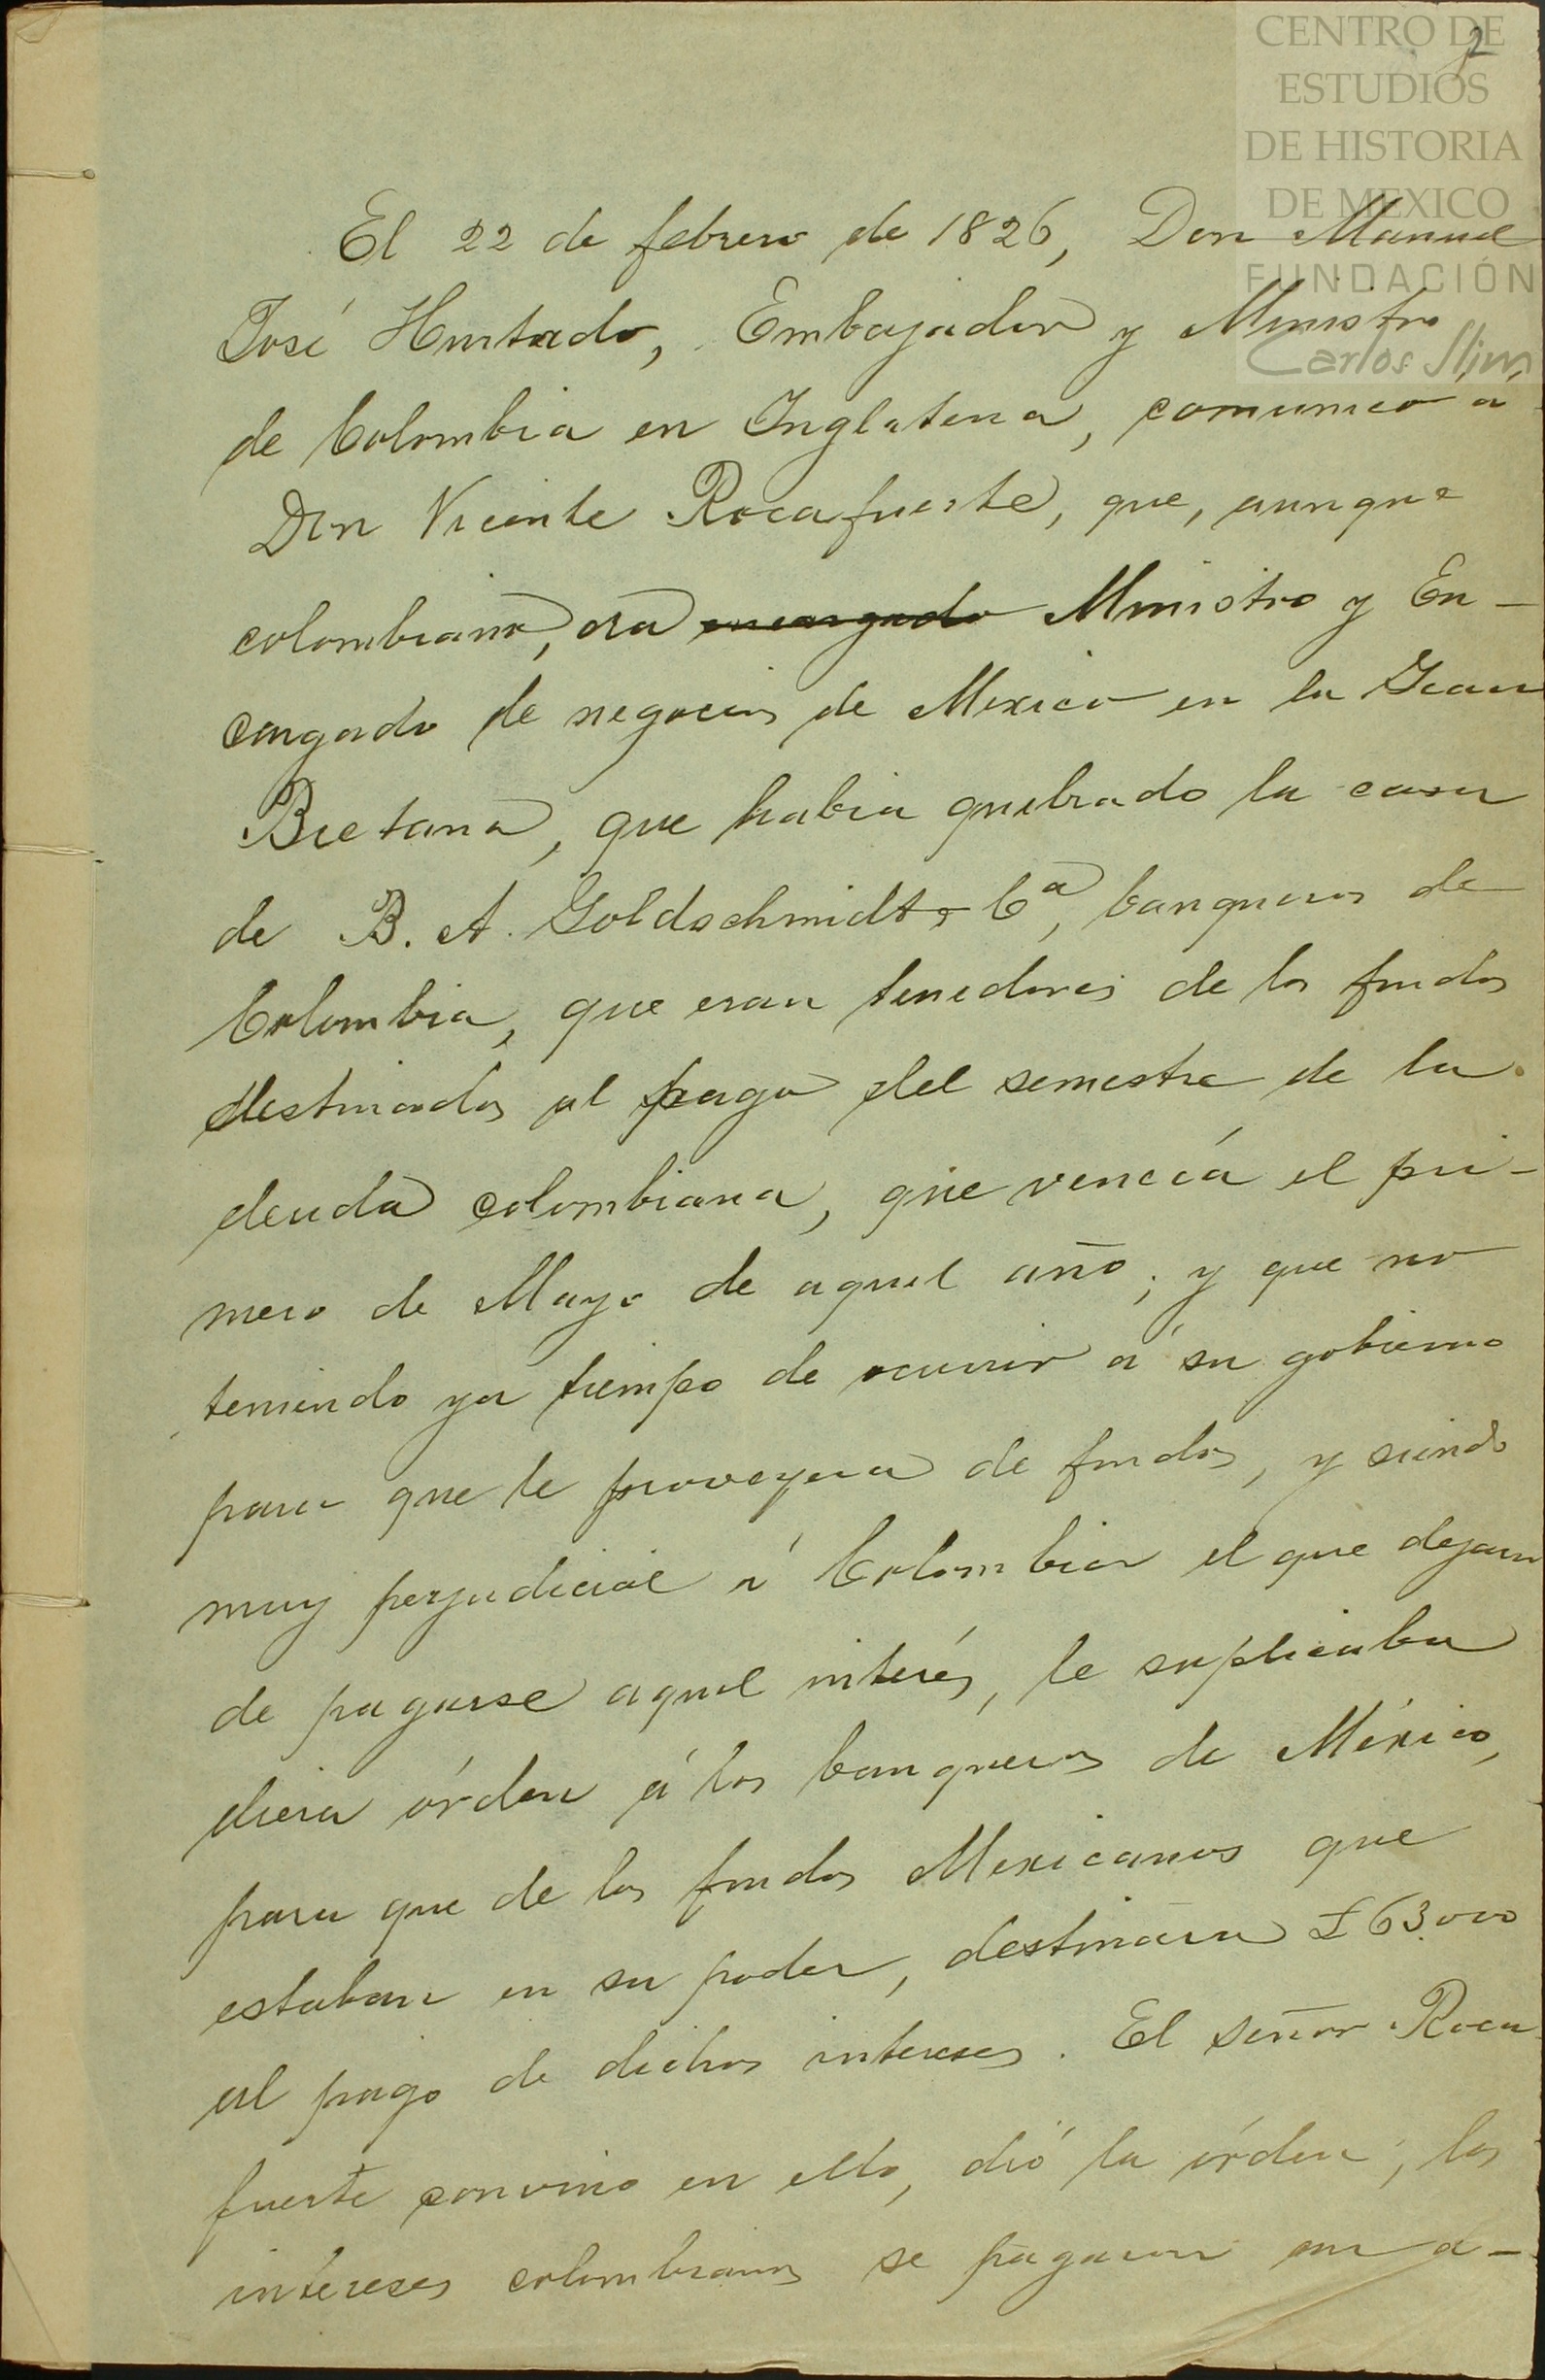 CENTRO DE
ESTUDIOS
DE HISTORIA
DE MEXICO
FUNDACIÓN
Carlos Slim
2
El 22 de febrero de 1826, Don Manuel
José Hurtado, Embajador y Ministro
de Colombia en Inglaterra, comunicó á
Don Vicente Rocafuerte, que, aunque
colombiano, era encargado Ministro y En-
cargado de negocios de Mexico en la Gran
Bretana, que habia quebrado la casa
de B. A. Goldschmidt y Cª, banqueros de
Colombia, que eran tenedores de los fondos
destinados al pago del semestre de la
deuda colombiana, que vencía el pri-
mero de Mayo de aquel año; y que no
teniendo ya tiempo de ocurrir á su gobierno
para que le proveyera de fondos, y siendo
muy perjudicial á Colombia el que dejara
de pagarse aquel interés, le suplicaba
diera órden á los banqueros de México,
para que de los fondos Mexicanos que
estaban en su poder, destinara £63.000
al pago de dichos intereses. El señor Roca
fuerte convino en ello, dió la órden; los
intereses colombianos se pagaron con a-